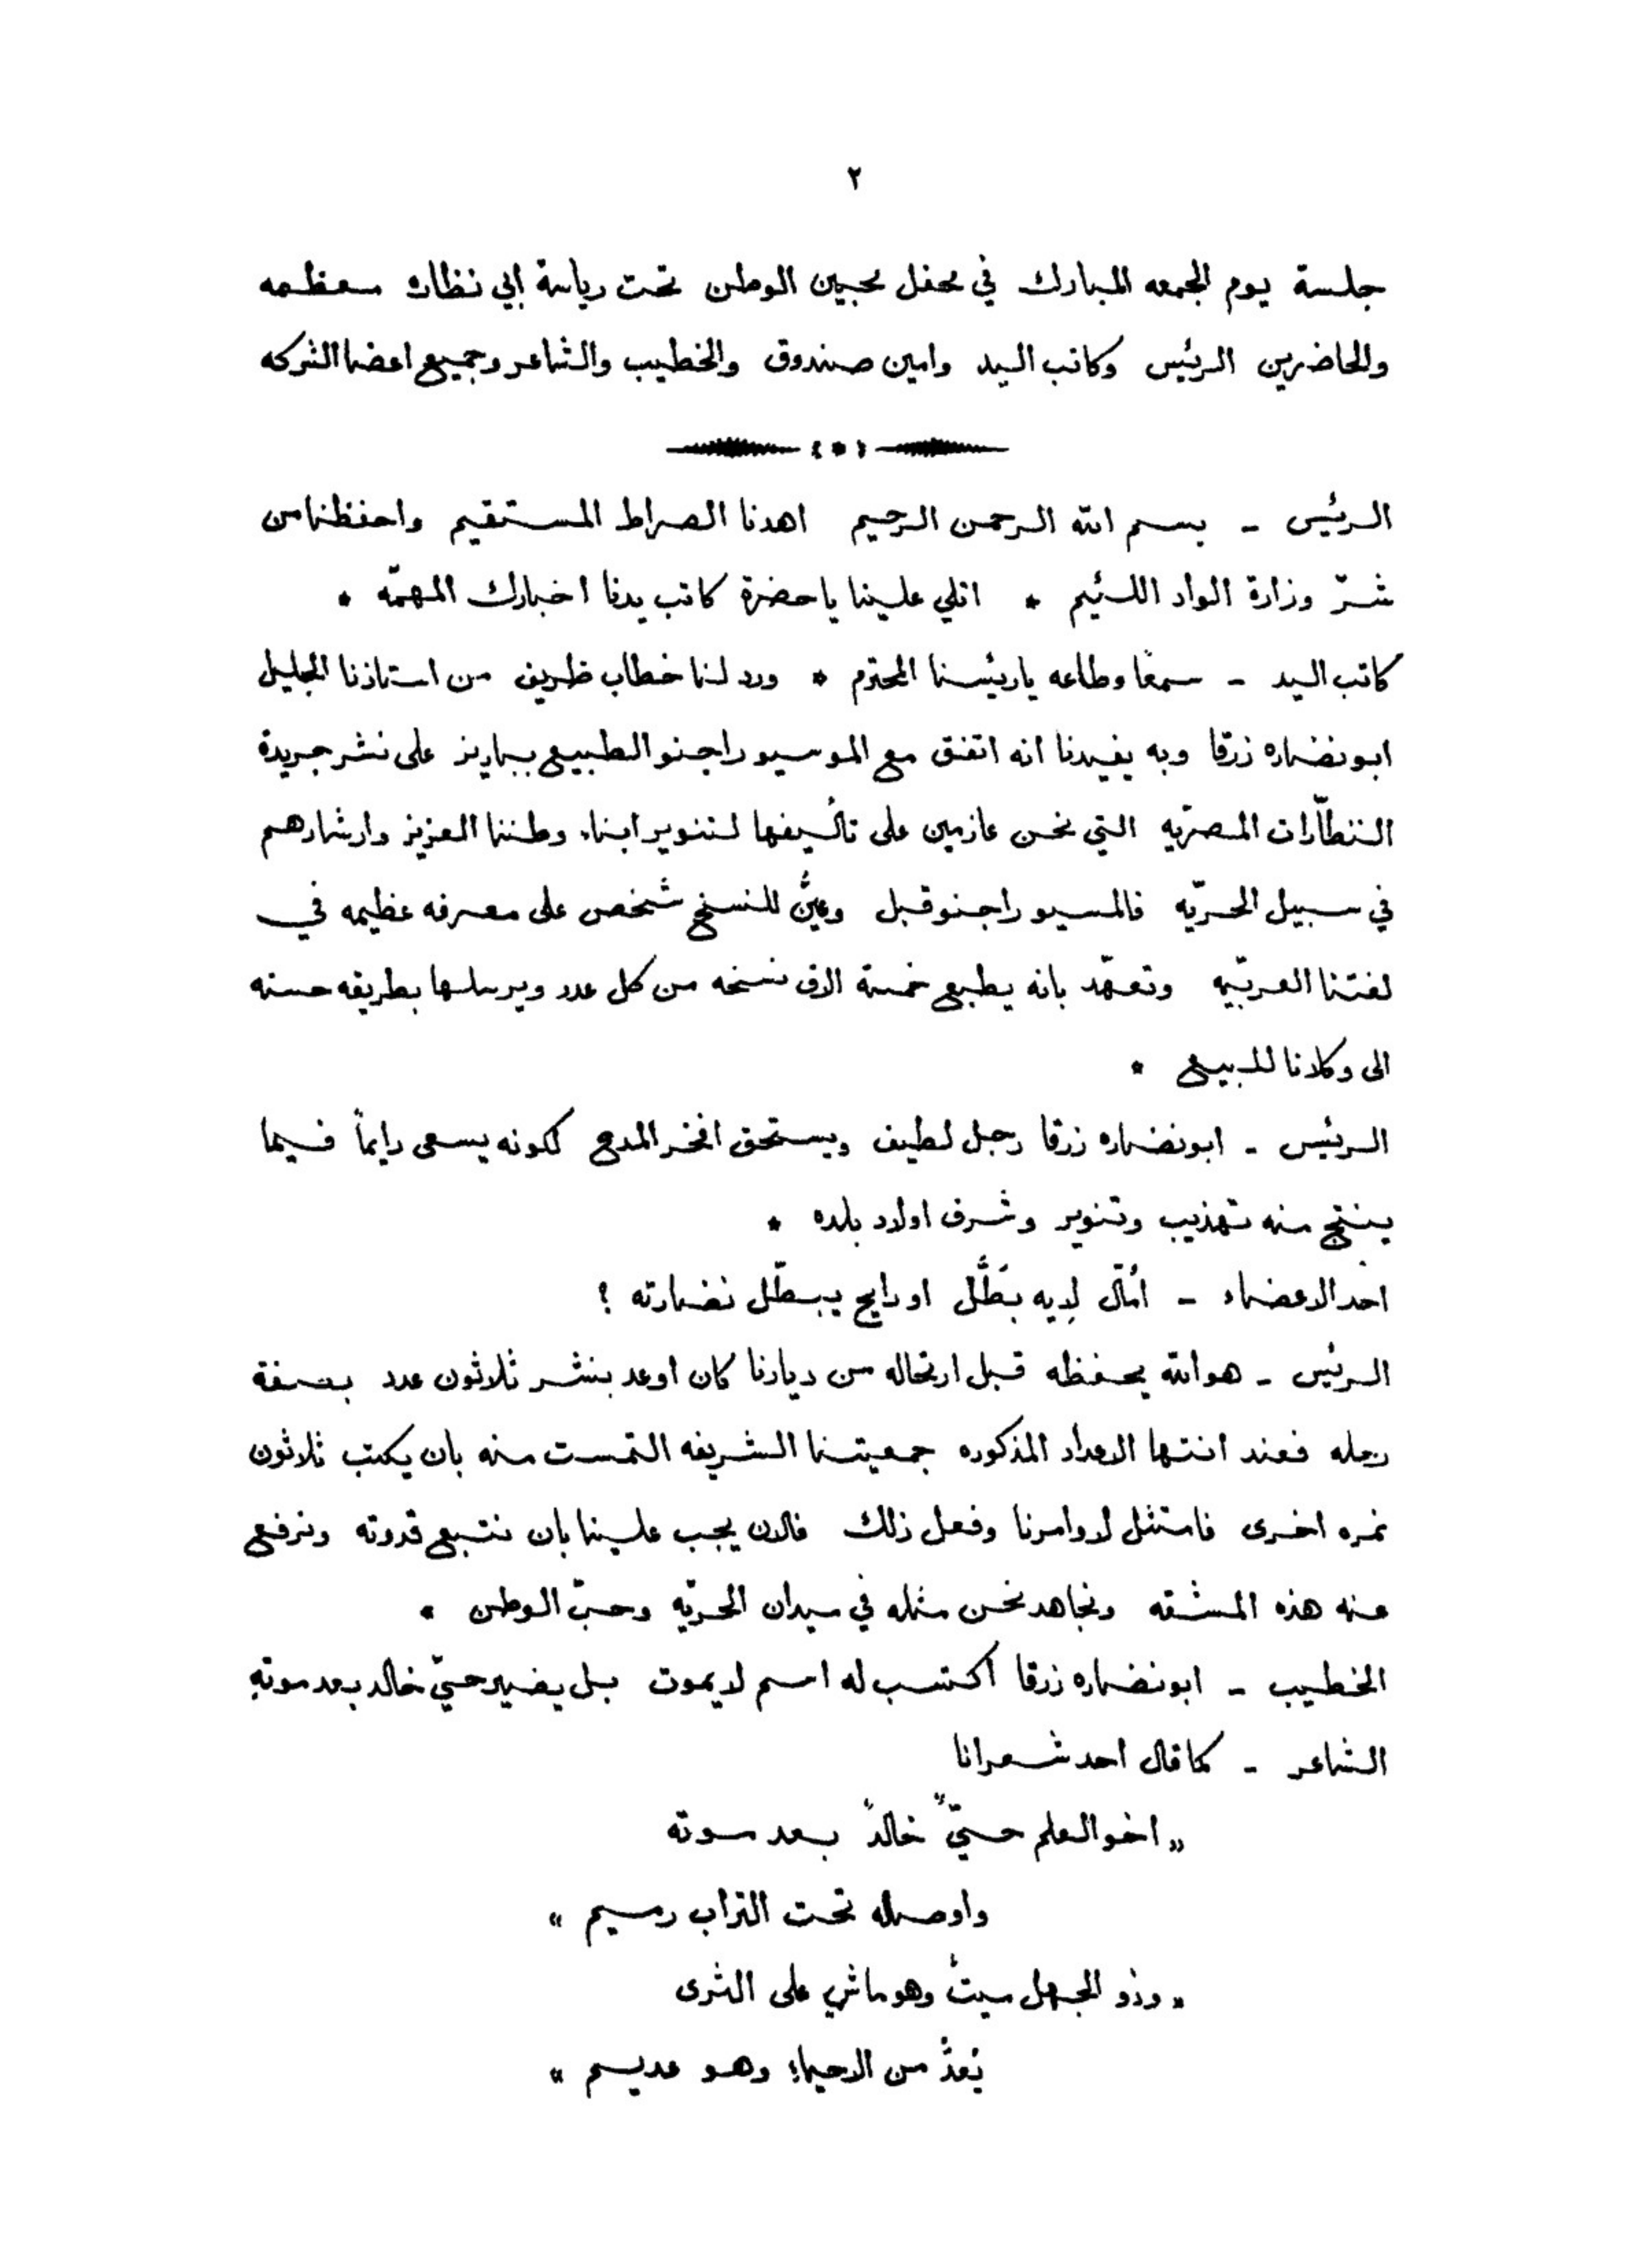 ٢
جلسة يوم الجمعه المبارك في محفل محبين الوطن تحت رياسة ابي نظارة معظمه
والحاضرين الرئيس وكاتب اليد وامين صندوق والخطيب والشاعر وجميع اعضا الشركه
الرئيس - بسم الله الرحمن الرحيم اهدنا الصراط المستقيم واحفظنا من
شرّ وزارة الواد اللئيم * اتلي علينا يا حضرة كاتب يدنا اخبارك المهمّه *
كاتب اليد - سمعًا وطاعه يا ريئسنا المحترم * ورد لنا خطاب ظريف من استاذنا الجليل
ابو نضاره زرقا وبه يفيدنا انه اتفق مع الموسيو راجنو الطبيع بباريز على نشر جريدة
النظّارات المصريّه التي نحن عازمين على تأليفها لتنوير ابناء وطننا العزيز وارشادهم
في سبيل الحريّه فالمسيو راجنو قبل وعيَّن للنسخ شخص على معرفه عظيمه في
لغتنا العربيّه وتعهّد بانه يطبع خمسة الاف نسخه من كل عدد ويرسلها بطريقه حسنه
الى وكلانا للبيع *
الرئيس - ابو نضاره زرقا رجل لطيف ويستحق افخر المدح لكونه يسعى دايمًا فيما
ينتج منه تهذيب وتنوير وشرف اولاد بلده *
احد الاعضاء - أمّال لِيه بَطَّل او رايح يبطّل نضارته ؟
الرئيس - هو الله يحفظه قبل ارتحاله من ديارنا كان اوعد بنشر ثلاثون عدد بصفة
رحله فعند انتها الاعداد المذكوره جمعيتنا الشريفه التمست منه بان يكتب ثلاثون
نمره اخرى فامتثل لاوامرنا وفعل ذلك فالان يجب علينا بان نتبع قدوته ونرفع
عنه هذه المشقه ونجاهد نحن مثله في ميدان الحريّه وحبّ الوطن *
الخطيب - ابو نضاره زرقا اكتسب له اسم لا يموت بل يضير حيّ خالد بعد موته
الشاعر - كما قال احد شعرانا
„ اخو العلم حيٌّ خالدٌ بعد موته
واوصاله تحت التراب رميم “
„ وذو الجهل ميتٌ وهو ماشي على الثرى
يُعدُّ من الاحياءِ وهو عديم “